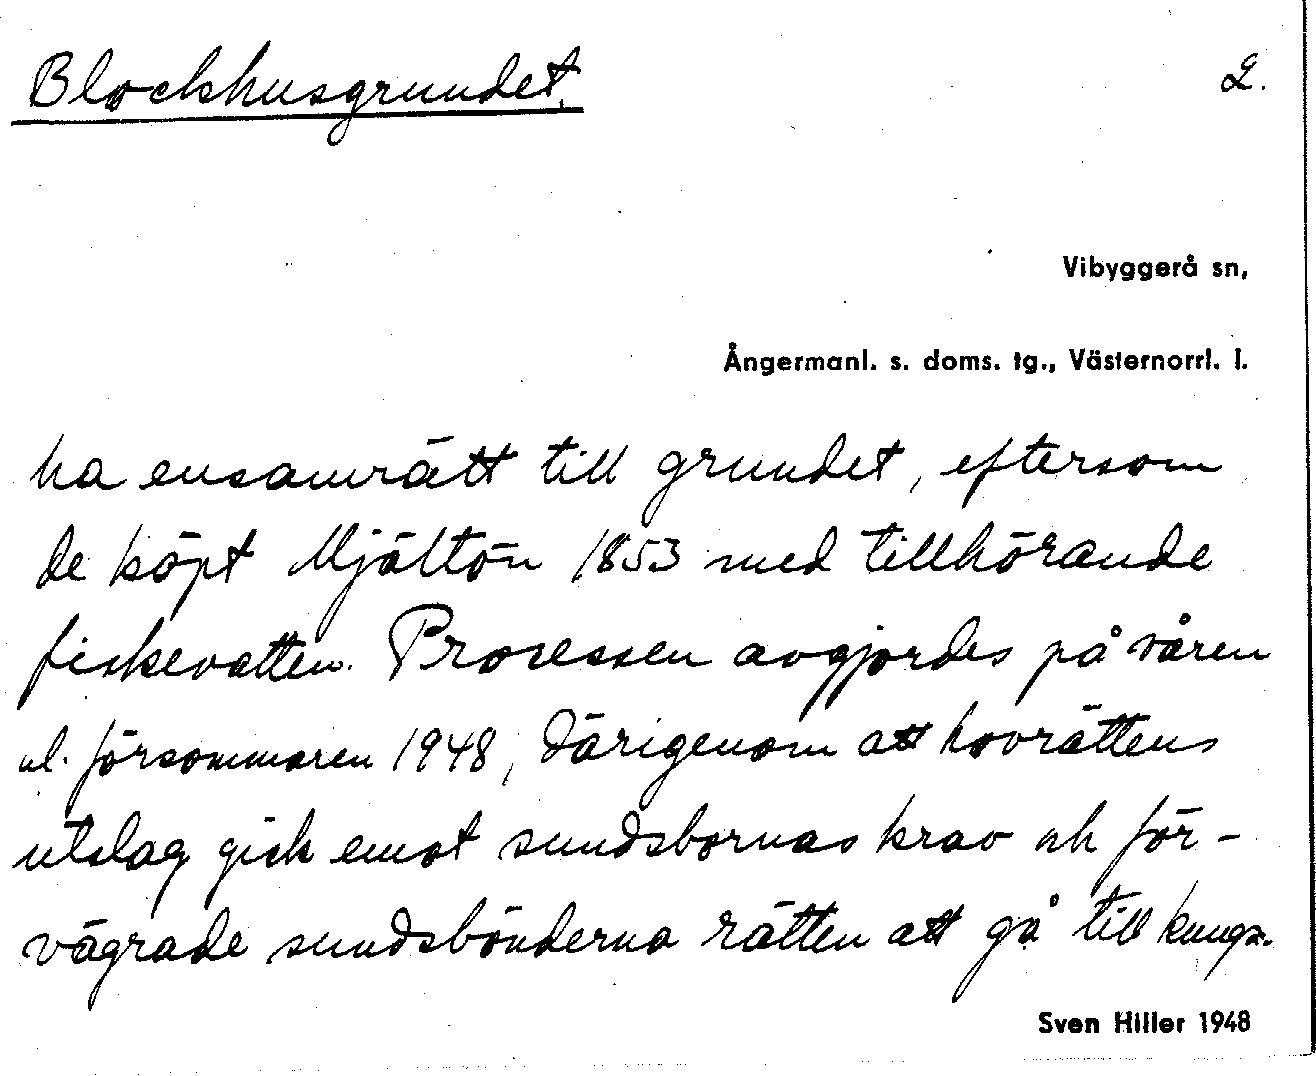 Blockhusgrundet. 2.
Vibyggerå sn,
Ångermanl. s. doms. tg., Västernorrl. l.
ha ensamrätt till grundet, eftersom
de köpt Mjältön 1853 med tillhörande
fiskevatten. Processen avgjordes på våren
el. försommaren 1948, därigenom att hovrättens
utslag gick emot sundsbornas krav och för-
vägrade sundsbönderna rätten att gå till kungs.
Sven Hiller 1948